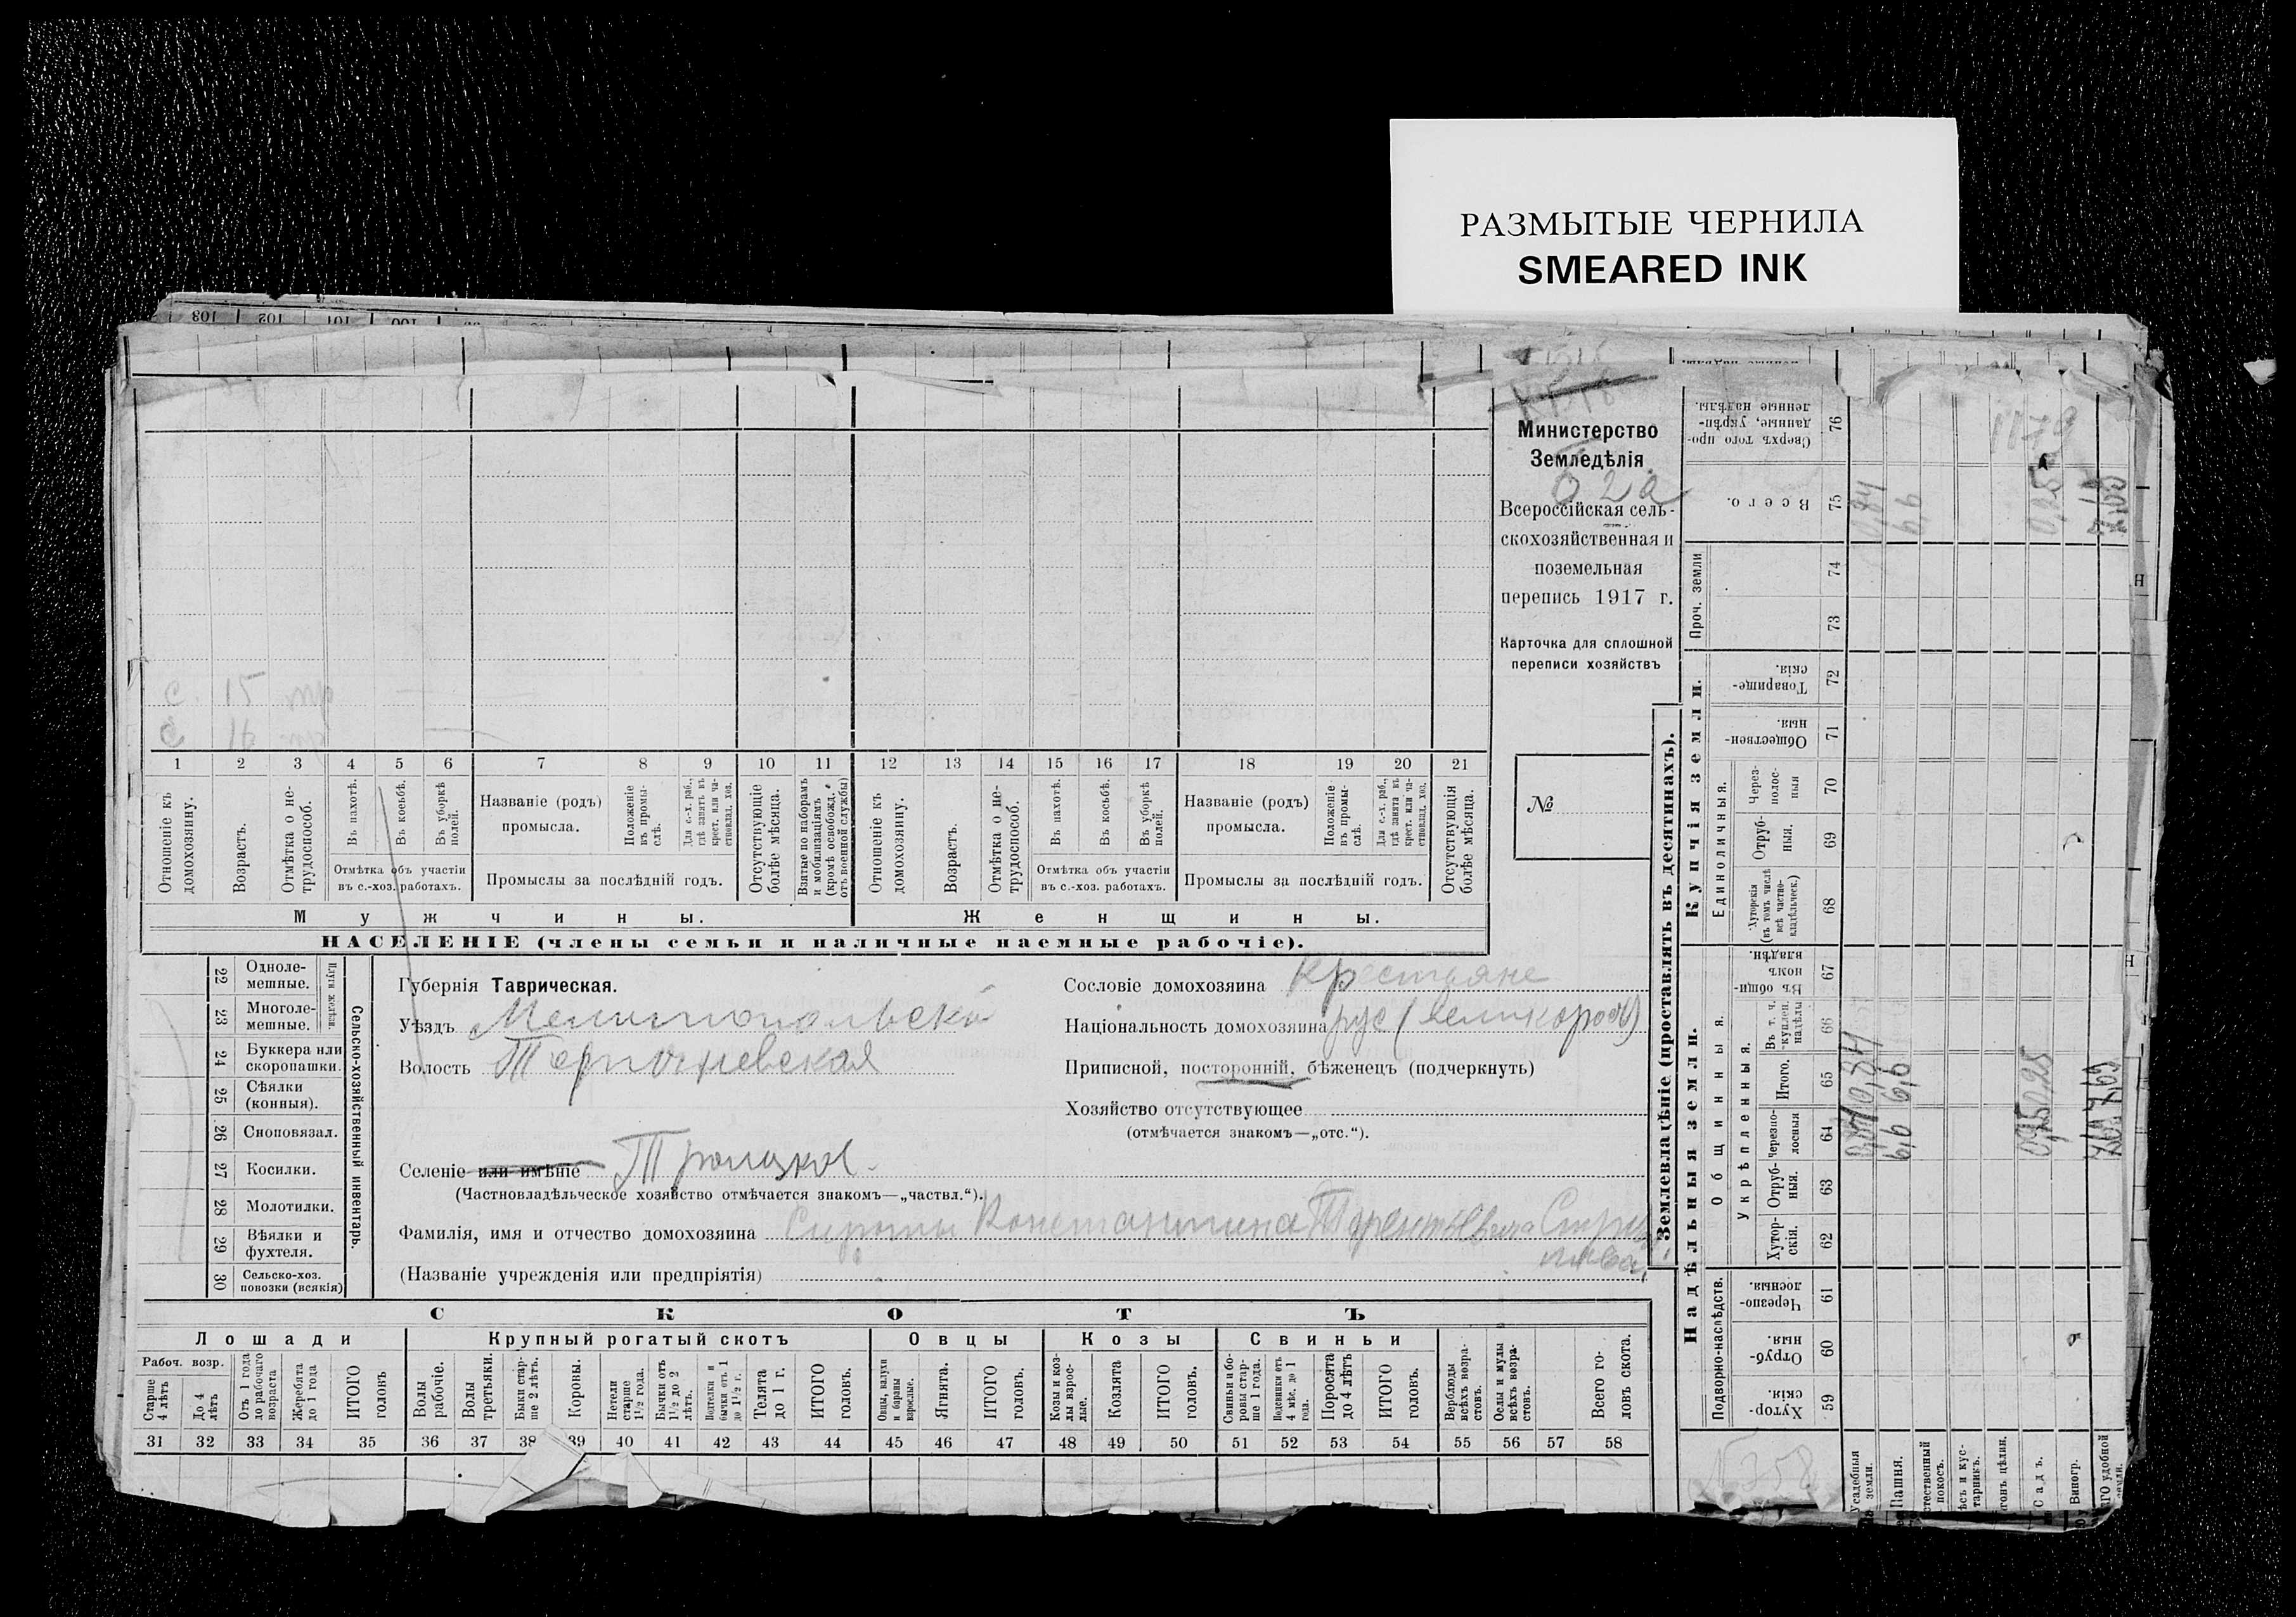 РАЗМЫТЫЕ ЧЕРНИЛА
SMEARED INK
103 102 101 100
Министерство
Земледѣлія
Всероссійская сель-
скохозяйственная и
поземельная
перепись 1917 г.
Карточка для сплошной
переписи хозяйствъ
№
с. 15 тр
с 16
1 2 3 4 5 6 7 8 9 10 11 12 13 14 15 16 17 18 19 20 21
Отношеніе къ домохозяину.
Возрастъ.
Отмѣтка о не-трудоспособ.
Въ пахотѣ.
Въ косьбѣ.
Въ уборкѣ полей.
Отмѣтка объ участіи
въ с.-хоз. работахъ.
Названіе (родъ)
промысла.
Положеніе въ промы-слѣ.
Для с.-х. раб., гдѣ занятъ въ крест. или ча-стновлад. хоз.
Промыслы за послѣдній годъ.
Отсутствующіе болѣе мѣсяца.
Взятые по наборамъ и мобилизаціямъ (кромѣ освобожд. отъ военной службы)
Отношеніе къ домохозяину.
Возрастъ.
Отмѣтка о не-трудоспособ.
Въ пахотѣ.
Въ косьбѣ.
Въ уборкѣ полей.
Отмѣтка объ участіи
въ с.-хоз. работахъ.
Названіе (родъ)
промысла.
Положеніе въ промы-слѣ.
Для с.-х. раб., гдѣ занята въ крест. или ча-стновлад. хоз.
Промыслы за послѣдній годъ.
Отсутствующія болѣе мѣсяца.
Мужчины.
Женщины.
НАСЕЛЕНІЕ (члены семьи и наличные наемные рабочіе).
22 Одноле-мешные.
23 Многоле-мешные.
Плуги желѣзн.
24 Буккера или скоропашки.
25 Сѣялки (конныя).
26 Сноповязал.
27 Косилки.
28 Молотилки.
29 Вѣялки и фухтеля.
30 Сельско-хоз. повозки (всякія)
Сельско-хозяйственный инвентарь.
Губернія Таврическая.
Уѣздъ Мелитопольскій
Волость
Селеніе или имѣніе Троицкое
(Частновладѣльческое хозяйство отмѣчается знакомъ—„частвл.“).
Фамилія, имя и отчество домохозяина Сироты Константина
(Названіе учрежденія или предпріятія)
Сословіе домохозяина крестьяне
Національность домохозяина рус (великоросс)
Приписной, посторонній, бѣженецъ (подчеркнуть)
Хозяйство отсутствующее
(отмѣчается знакомъ—„отс.“).
СКОТЪ
Лошади
Крупный рогатый скотъ
Овцы
Козы
Свиньи
Рабоч. возр.
Старше 4 лѣтъ
До 4 лѣтъ
Отъ 1 года до рабочаго возраста
Жеребята до 1 года
ИТОГО головъ
Волы рабочіе.
Волы третьяки.
Быки стар-ше 2 лѣтъ.
Коровы.
Нетели старше 1½ года.
Бычки отъ 1½ до 2 лѣтъ.
Телята до 1 г.
ИТОГО головъ.
Овцы, валухи и бараны взрослые.
Ягнята.
ИТОГО головъ.
Козы и коз-лы взрос-лые.
Козлята
ИТОГО головъ.
Свиньи и бо-ровы стар-ше 1 года.
Подсвинки отъ 4 мѣс. до 1 года.
Поросята до 4 лѣтъ
ИТОГО головъ.
Верблюды всѣхъ возра-стовъ.
Ослы и мулы всѣхъ возра-стовъ.
Всего го-ловъ скота.
31 32 33 34 35 36 37 38 39 40 41 42 43 44 45 46 47 48 49 50 51 52 53 54 55 56 57 58
Землевладѣніе (проставлять въ десятинахъ).
Надѣльныя земли.
Купчія земли.
Проч. земли
Подворно-наслѣдств.
Общинныя.
Укрѣпленныя.
Единоличныя.
59 Хутор-скія.
60 Отруб-ныя.
61 Черезпо-лосныя.
62 Хутор-скія.
63 Отруб-ныя.
64 Черезпо-лосныя
65 Итого.
66 Въ т. ч. купчен. надѣлы
67 Въ общи-номъ владѣн.
68 Хуторскія (въ томъ числѣ всѣ частно-владѣльческ.)
69 Отруб-ныя.
70 Через-полос-ныя
71 Обществен-ныя.
72 Товарище-скія.
73
74
75 Всего.
76 Сверхъ того про-данные, укрѣп-ленные надѣлы.
Усадебныя земли. 0,84
Пашня. 6,6 6,6 6,6
Садъ. 0,25 0,25
Виногр.
7,69
№358